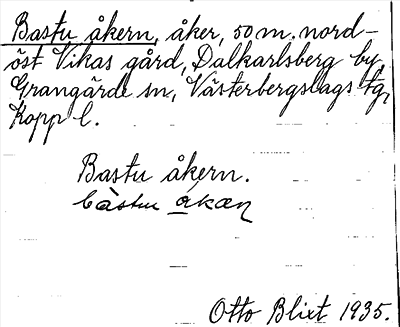 Bastu åkern, åker, 50 m. nord-
öst Vikas gård, Dalkarlsberg by,
Grangärde sn, Västerbergslags tg,
Kopp l.
Bastu åkern.
bàstu åkæṇ
Otto Blixt 1935.